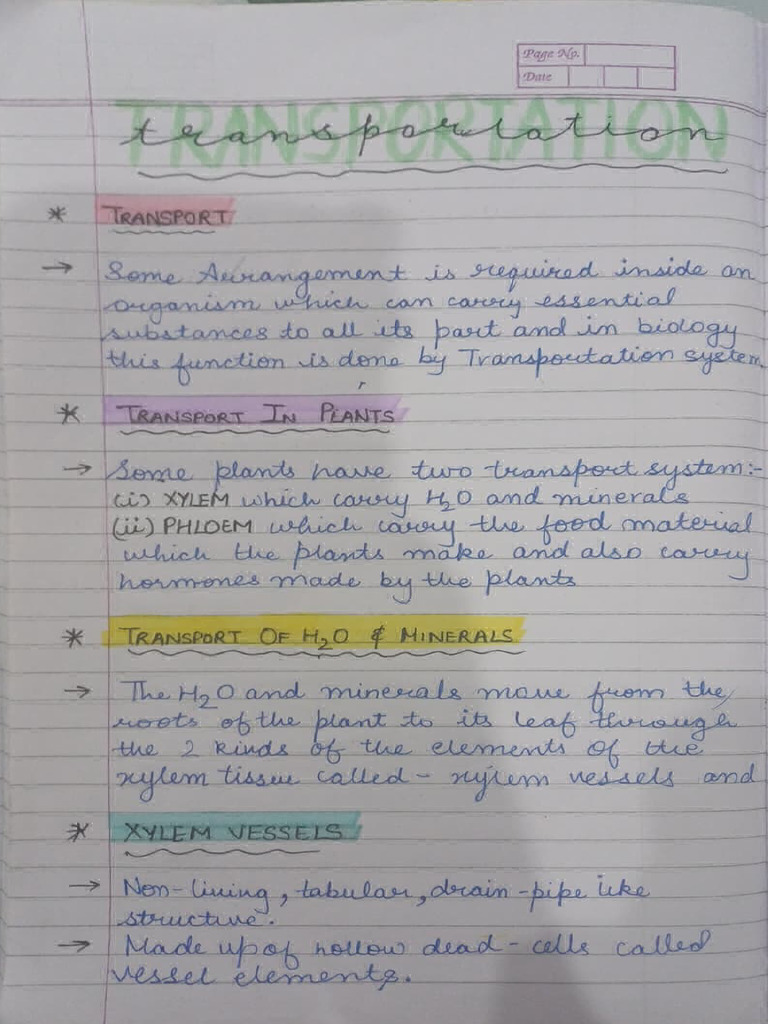 Page No.
Date
TRANSPORTATION
transportation
* TRANSPORT
→ Some Aurrangement is required inside an
organism which can carry essential
substances to all its part and in biology
this function is done by Transportation system
* TRANSPORT IN PLANTS
→ Some plants have two transport system:-
(i) XYLEM which carry H₂O and minerals
(ii) PHLOEM which carry the food material
which the plants make and also carry
hormones made by the plants
* TRANSPORT OF H₂O & MINERALS
→ The H₂O and minerals move from the
roots of the plant to its leaf through
the 2 kinds of the elements of the
xylem tissue called - xylem vessels and
* XYLEM VESSELS
→ Non-living, tabular, drain-pipe like
structure.
→ Made up of hollow dead-cells called
vessel elements.